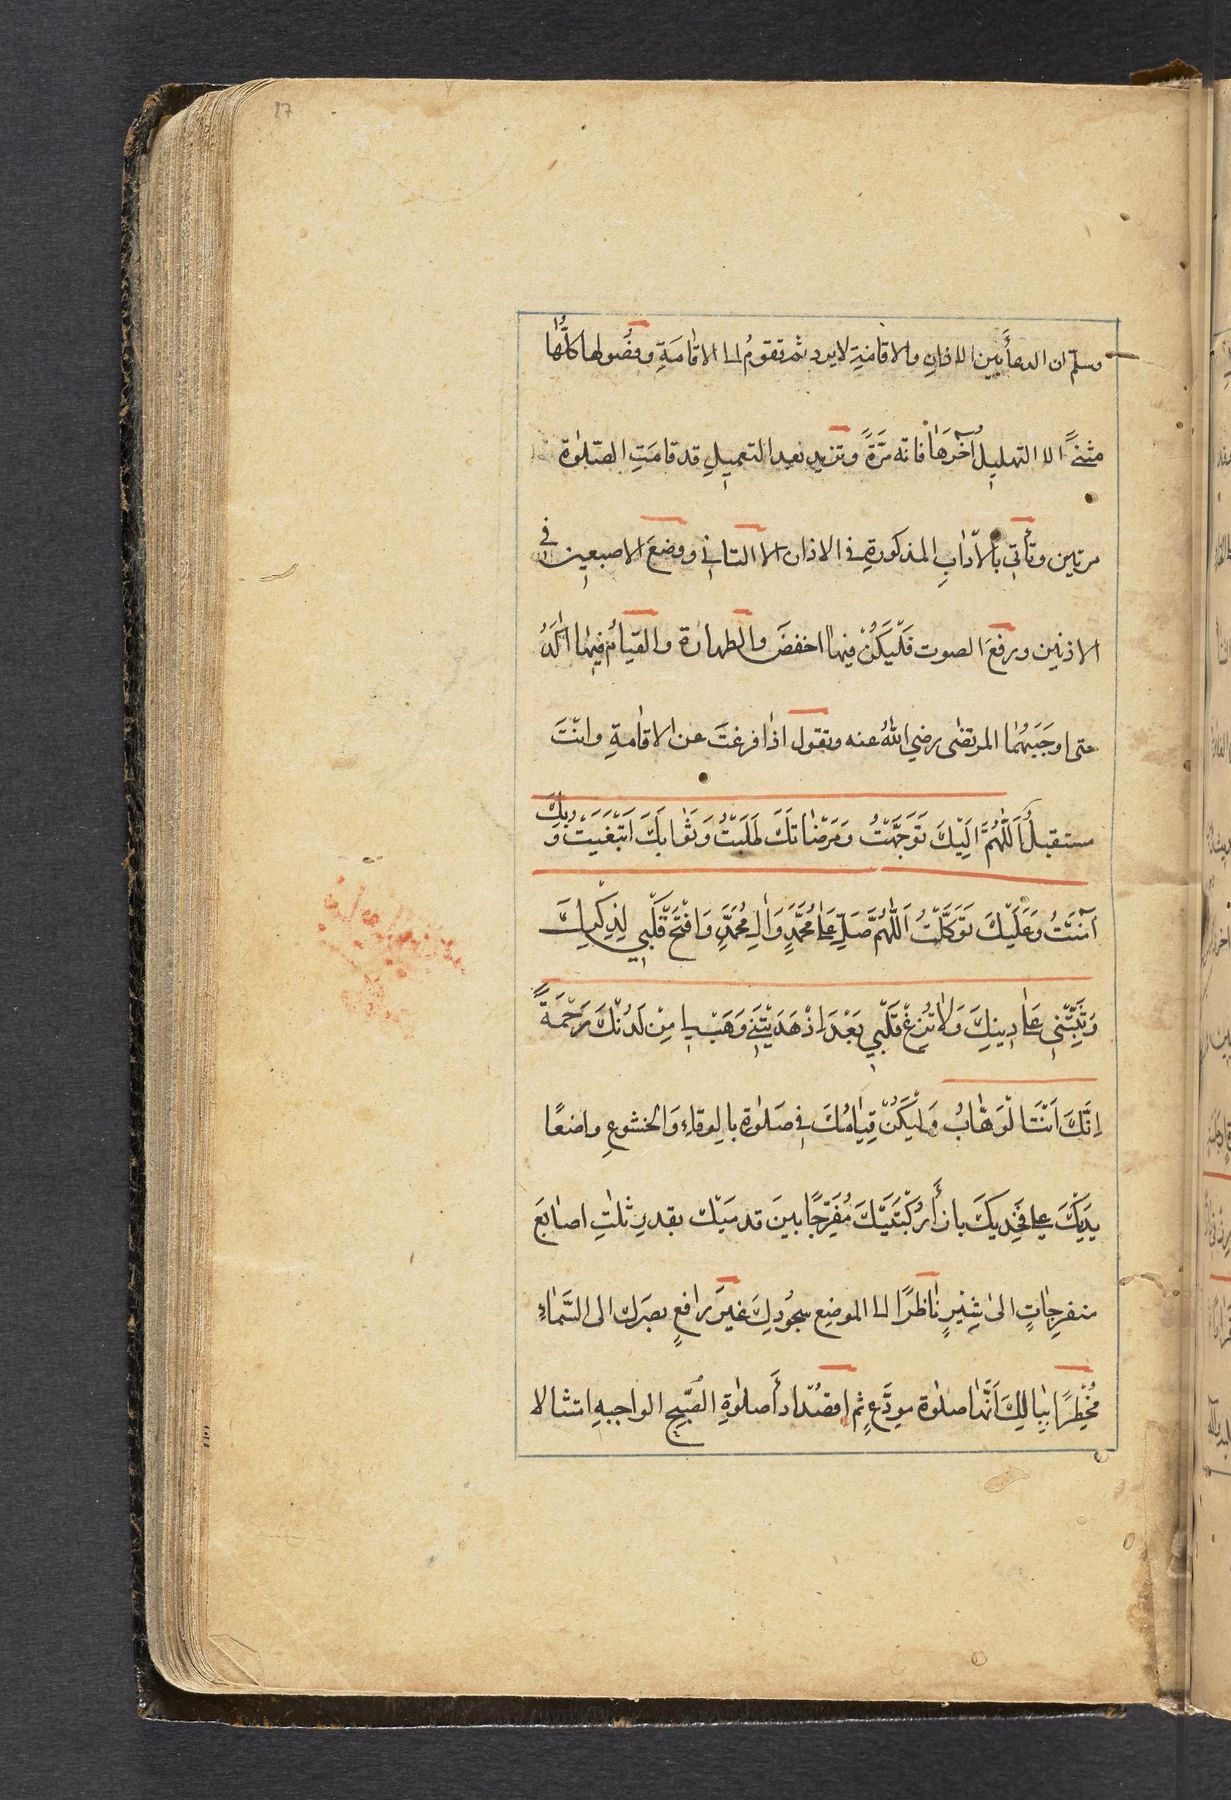 17
وسلّم ان الدعأ بين الاذانِ والاقامَةِ لا يرد ثم تقومُ الى الاقامَةِ وفصُولها كلُّها
مثنىً الا التهليلُ آخرَهٰا فانه مَرّةً وتزيد بعد التعميلِ قد قامَتِ الصّلوٰة
مرتين وتأتي بالآدابِ المذكورةِ في الاذان الا الثاني ووضعَ الاصبعين في
الاذنين ورفعَ الصوت فَلْيَكُنْ فيها اخفضَ والطهارة والقيامُ فيهما اٰكدُ
حتى اوجَبَهُما المرتضٰى رضي اللهُ عنه وتقول اذا فرغتَ عن الاقامةِ وانْتَ
مستقبلُ اَللّٰهُمَّ اِلَيْكَ تَوَجَّهْتُ وَمَرْضٰاتَكَ طَلَبْتُ وَثَوٰابَكَ ابْتَغَيْتُ وَبِكَ
آمَنْتُ وَعَلَيْكَ تَوَكَّلْتُ اَللّٰهُمَّ صَلِّ عَلىٰ مُحَمَّدٍ وَاٰلِ مُحَمَّدٍ وَافْتَحْ قَلْبِي لِذِكْرِكَ
وَثَبِّتْنِي عَلىٰ دِينِكَ وَلاٰ تُزِغْ قَلْبِي بَعْدَ اِذْ هَدَيْتَنِي وَهَبْ لِي مِنْ لَدُنْكَ رَحْمَةً
اِنَّكَ اَنْتَ الْوَهّٰابُ وَلْيَكُنْ قِيٰامُكَ في صَلوٰة بالوقارِ وَالخشوعِ واضعًا
يدَيْكَ على فَخِدَيكَ بازأ رُكْبَتَيْكَ مُفَرِّجًا بينَ قدمَيْك بقدرِ ثلٰثِ اصابعَ
منفرِجاتٍ الىٰ شِبْرٍ نٰاظرًا الى الموضِع سجُودِكَ غيرَ رافعٍ بصرَك الى السَّمٰاءِ
مُخْطِرًا بِبٰالِكَ اَنَّهٰا صلوٰة مودَّعٍ ثم اقصُد ادأَ صلوٰةِ الصّبْحِ الواجبهِ امتثالا